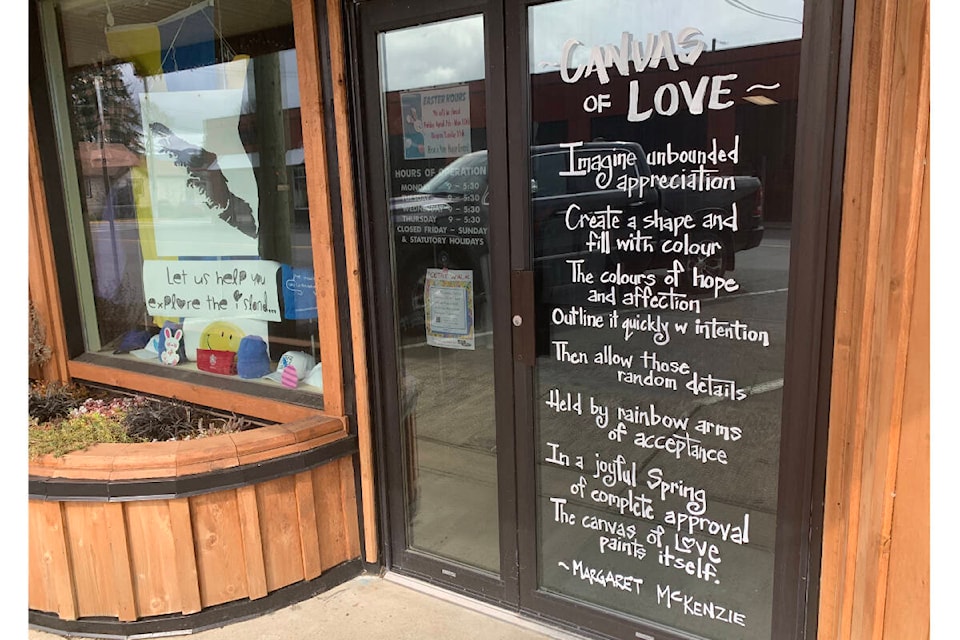 Let us help you
explore the island...
EASTER HOURS
HOURS OF OPERATION
MONDAY 9 - 5:30
TUESDAY 9 - 5:30
WEDNESDAY 9 - 5:30
THURSDAY 9 - 5:30
CLOSED FRIDAY - SUNDAY
& STATUTORY HOLIDAYS
~CANVAS
OF LOVE~
Imagine unbounded
appreciation
Create a shape and
fill with colour
The colours of hope
and affection
Outline it quickly w intention
Then allow those
random details
Held by rainbow arms
of acceptance
In a joyful Spring
of complete approval
The canvas of Love
paints itself.
~MARGARET MCKENZIE